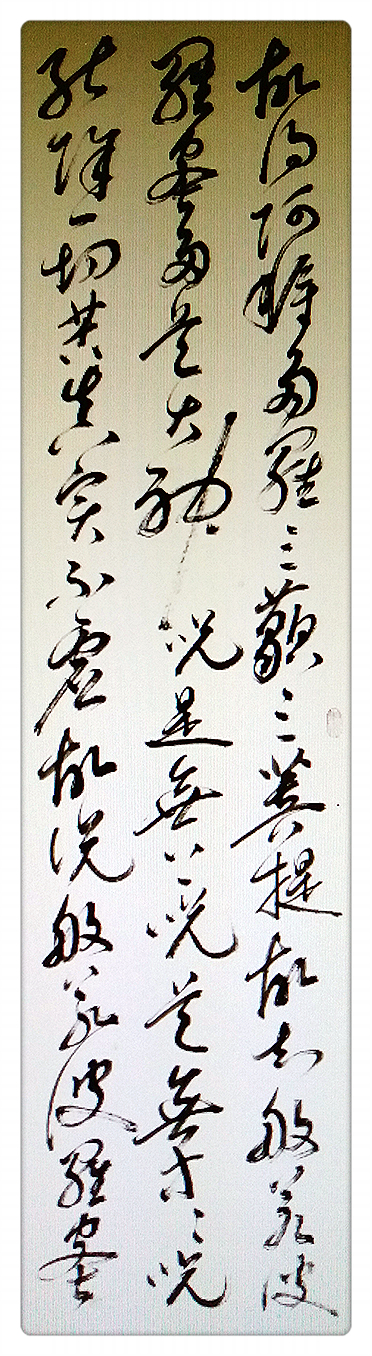 故得阿耨多羅三藐三菩提故知般若波
羅蜜多是大神呪是無上呪是無等々呪
能除一切苦真實不虛故說般若波羅蜜